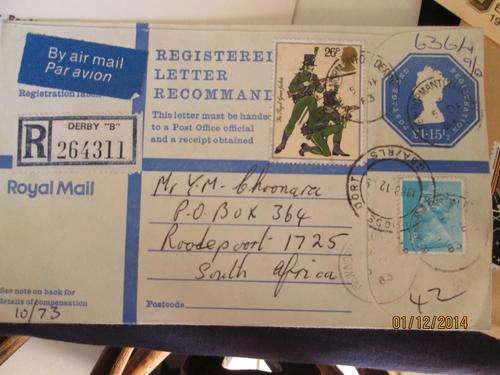 By air mail
Par avion
REGISTERE
LETTER
RECOMMAN
26P
636/4
POSTAGE AND REGISTRATION
£1·15½
Registration label
This letter must be hande
to a Post Office official
and a receipt obtained
R
DERBY "B"
264311
Royal Mail
Mr Y.M. Choonara
P.O. BOX 364
Roodepoort 1725
South Africa
Postcode
See note on back for
details of compensation
10/73
42
01/12/2014